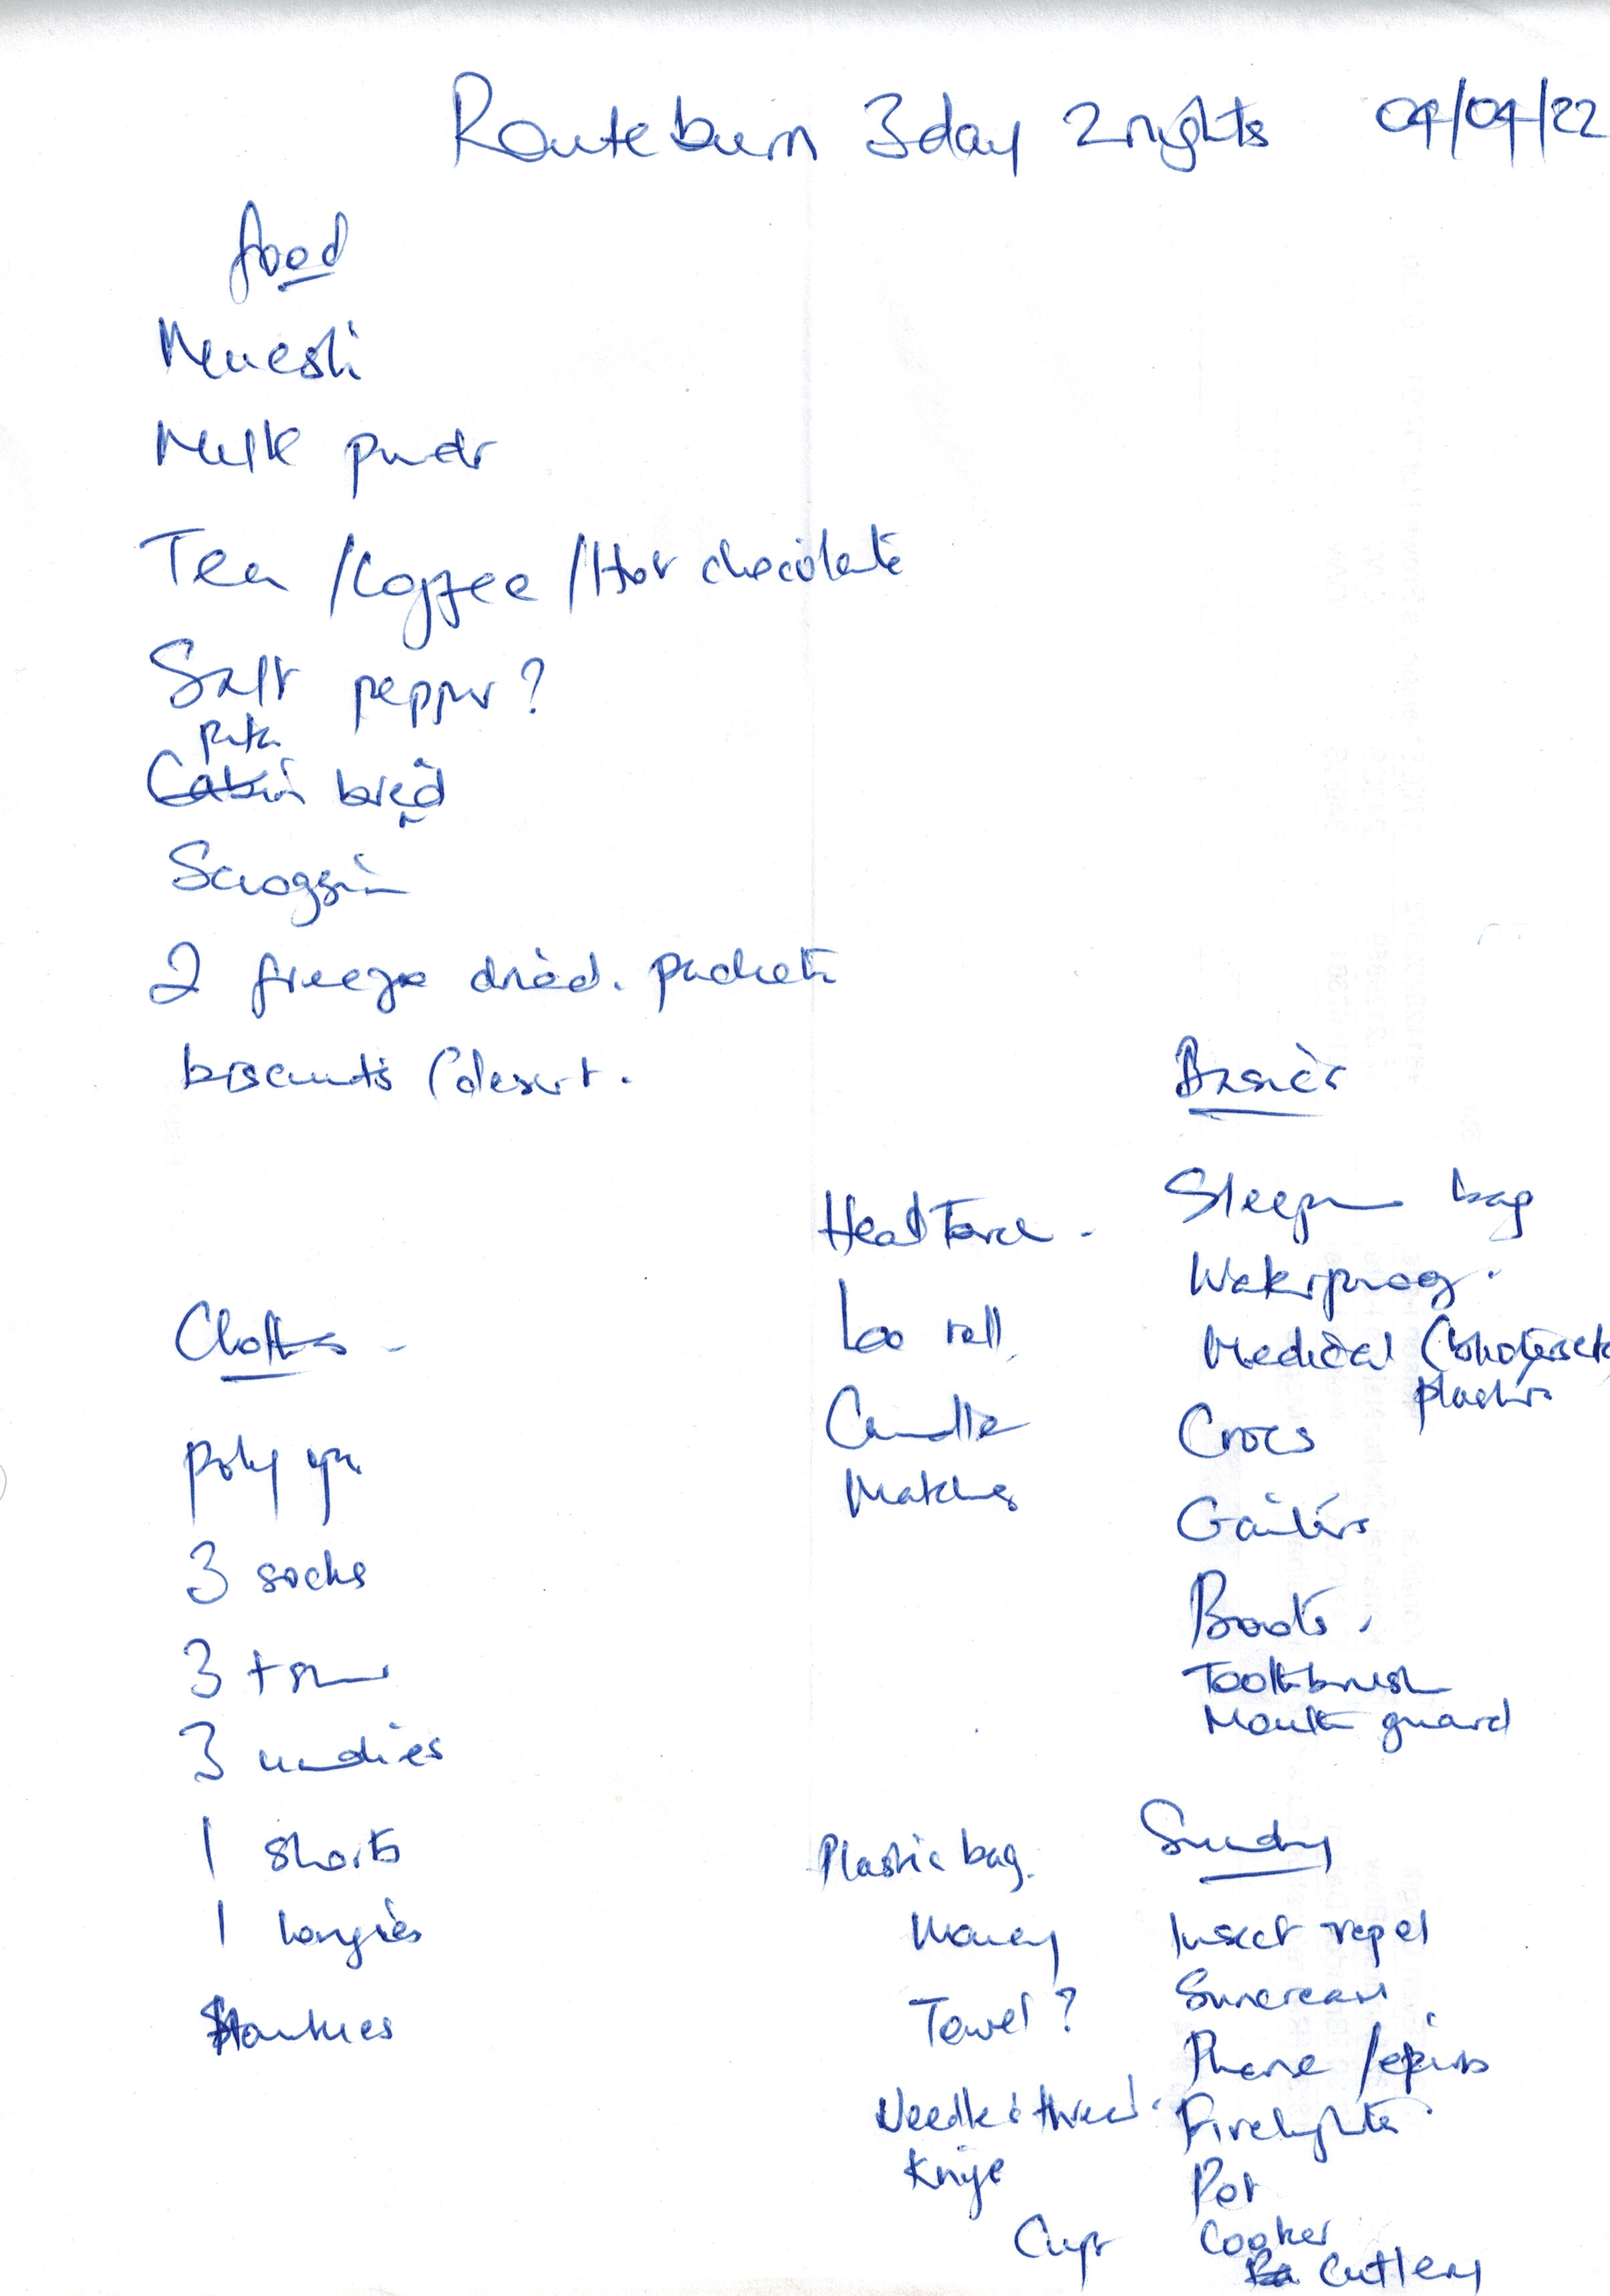 Routeburn 3day 2nights 04/04/22
food
Muesli
Milk powdr
Tea /Coffee /Hot chocolate
Salt pepper?
pita
Cabin bread
Scroggin
2 freeze dried. packets
biscuits (desert.
Basics
Sleepin bag
Waterproof.
Medical (
plasters
Crocs
Gaiters
Boots.
Toothbrush
Mouth guard
Head Torch.
Loo roll
Candle
Matches
Clothes -
poly
3 socks
3
3 undies
1 shorts
1 longies
Hankies
Sundry
Insect repel
Suncream
Phone /epirb
Firelighters
Pot
Cooker
Cutlery
Plastic bag.
Money
Towel?
Needle & thread.
Knife
Cup